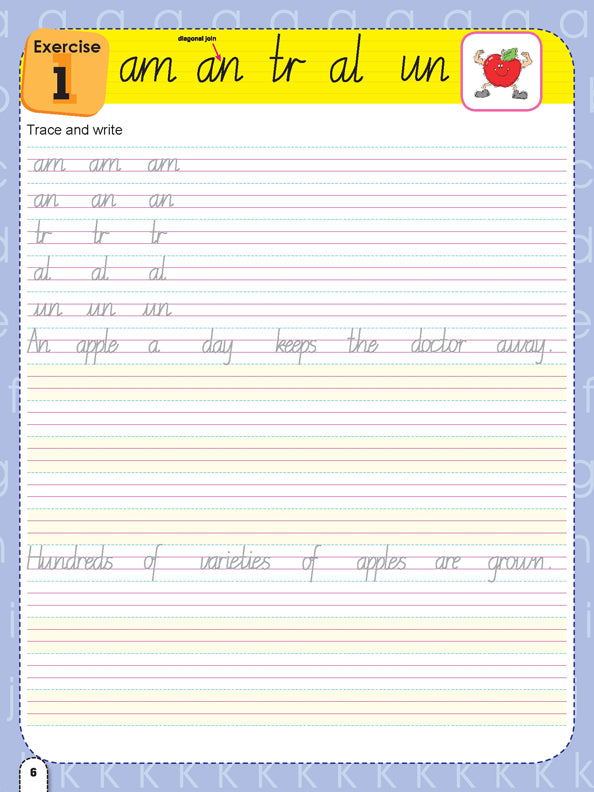 Exercise
1
diagonal join
am an tr al un
Trace and write
am am am
an an an
tr tr tr
al al al
un un un
An apple a day keeps the doctor away.
Hundreds of varieties of apples are grown.
6